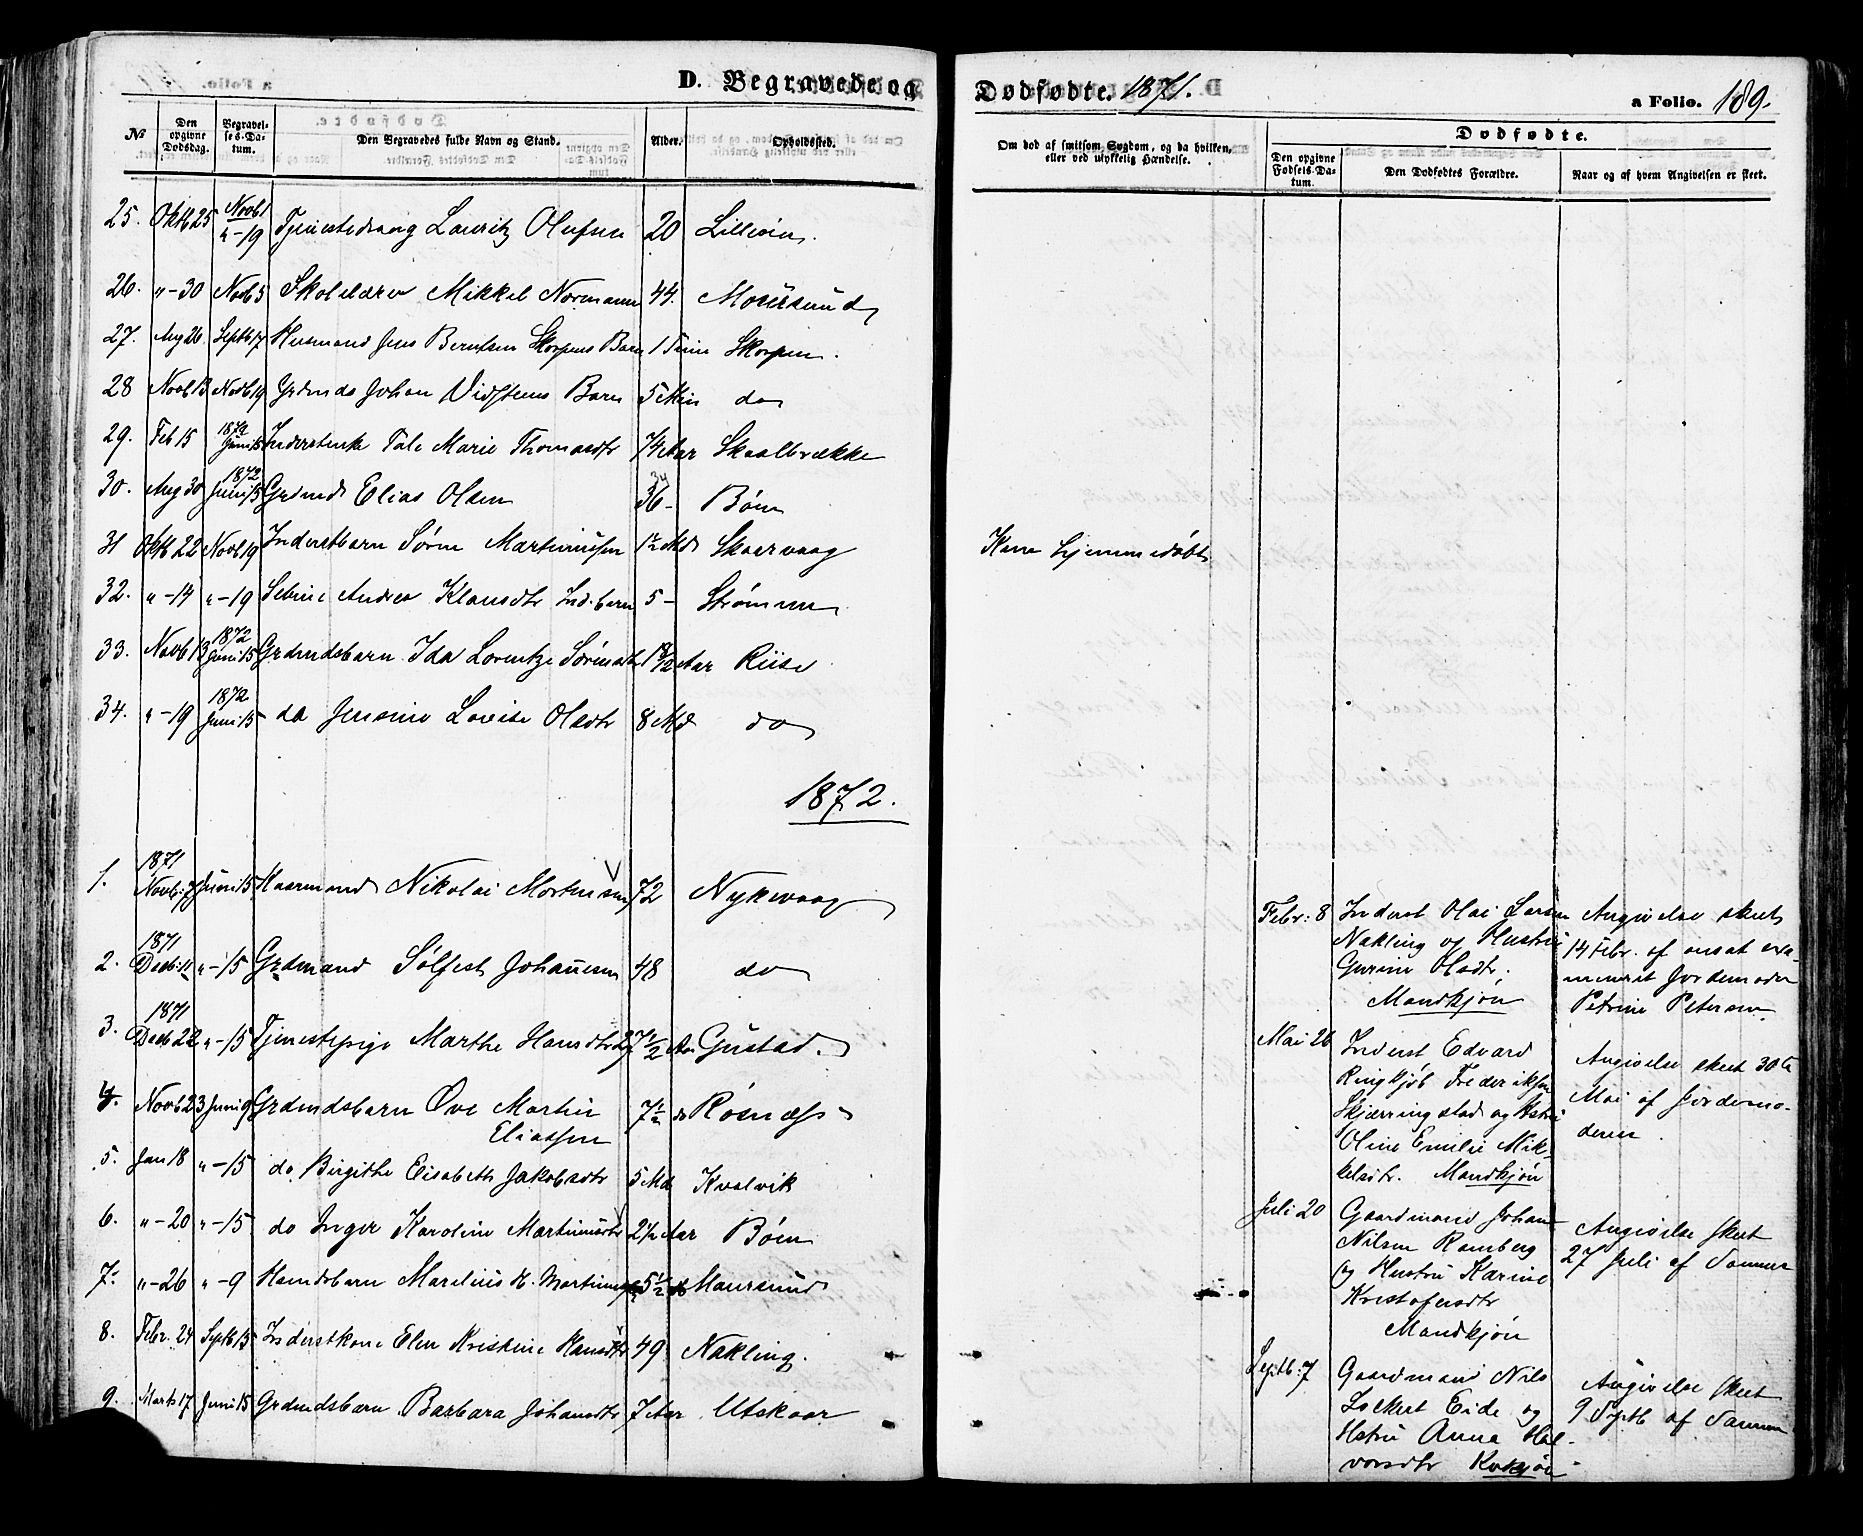 D. Begravede og
№ | Den opgivne Dødsdag. | Begravelses-Datum. | Den Begravedes fulde Navn og Stand. | Alder. | Opholdssted.
25. Oktb 25 Novb 1 "-19 Tjenestedreng Lauritz Olufsen 20
26. "-30 Novb 5 Skolelærer Mikkel Normann 44. Moursund
27. Aug 26 Septb 17 Husmand Jens Berntsen Skorpens Barn 1 Time Skorpen.
28 Novb 13 Novb 19 Grdmds Johan Vidsteens Barn 5 Min do
29. Feb 15 Juni 15 Inderstenke Tale Marie Thomasdtr 74 Aar Skaalbrække
30. Aug 30 1872 Juni 15 Grdmd Elias Olsen 36 - Bøen
31 Oktb 22 Novb 19 Inderstbarn Søren Martinussen 1½ Md Skaarvaag
32. "-14 "-19 Andrea Klausdtr Ind.barn 5 - Strømmen
33. Novb 13 1872 Juni 15 Grdmdsbarn Ida Lorentze Sørensdtr Aar Riise
34. "-19 1872 Juni 15 do Jensine Lovise Olsdtr 8 Md do
1872.
1. 1871 Novb: Juni 15 Kaarmand Nikolai Mortensen 72 Nykvaag
2. 1871 Decb: 11 "-15 Grdmand Sølfest Johannesen 48 do
3. 1871 Decb 22 "-15 Tjenestepige Marthe Hansdtr 27½ Aar Gustad.
4. Novb 23 Juni 9 Grdmdsbarn Ove Martin 7½ do Rosnæss
Eliassen
5. Jan 18 "-15 do Birgithe Elisabeth Jakobsdtr 5 Md Kvalvik
6. "-20 "-15 do Inger Karoline Martinusdtr 2½ Aar Bøen
7. "-26 "-9 Marelius H. 5½ Maursund
8. Febr. 24 Septb 15 Inderstkone Elen Kristine Hansdtr 49 Nakling.
9. Marts 17 Juni 15 Grdmdsbarn Barbara Johansdtr 7 Aar Utskaar
Dødfødte. 1871. a Folio. 189.
Om død af smitsom Sygdom, og da hvilken, eller ved ulykkelig Hændelse. | Dødfødte.
Den opgivne Fødsels-Datum. | Den Dødfødtes Forældre. | Naar og af hvem Angivelsen er skeet.
Kun hjemmedøbt
Febr: 8 Inderst Olai Larsen
Nakling og Hustru
Gurine Olsdtr.
Mandkjøn
Angivelse skeet
14 Febr. af ansat exa-
mineret Jordemoder
Petrine Petersen.
Mai 26 Inderst Edvard
Ringkjøb Frederiksen
Skjærringstad og Hstru
Oline Emilie Mik-
kelsdtr. Mandkjøn
Angivelse skeet 30te
Mai af Jordemo-
deren.
Juli 20 Gaardmand Johan
Nilsen Ramberg
og Hustru Karine
Kristofersdtr
Mandkjøn
Angivelse skeet
27 Juli af Samme
Septb: 7 Gaardmand Nils
Lockert Eide og
Hstru Anna Hal-
vorsdtr Kvkjøn
Angivelse skeet
9 Septb af Samme